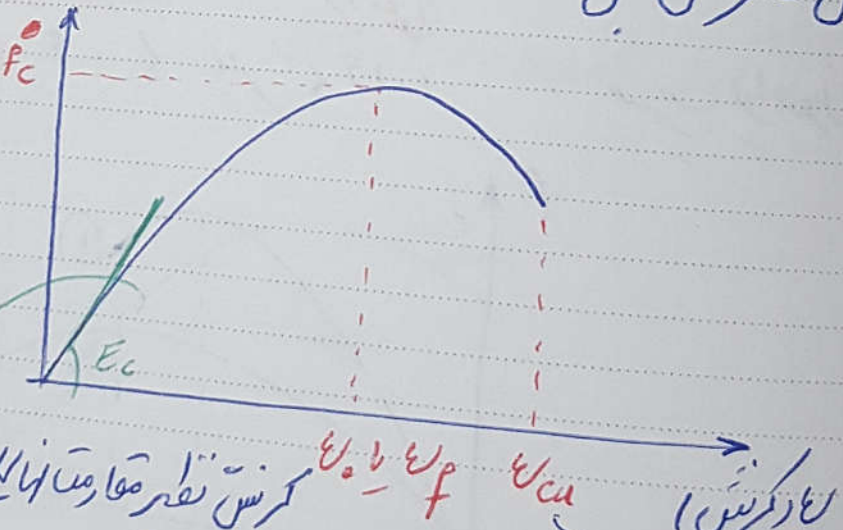 f́c
Ec
ε₀ یا εf
εcu
ε (کرنش)
کرنش نظیر مقاومت نهایی